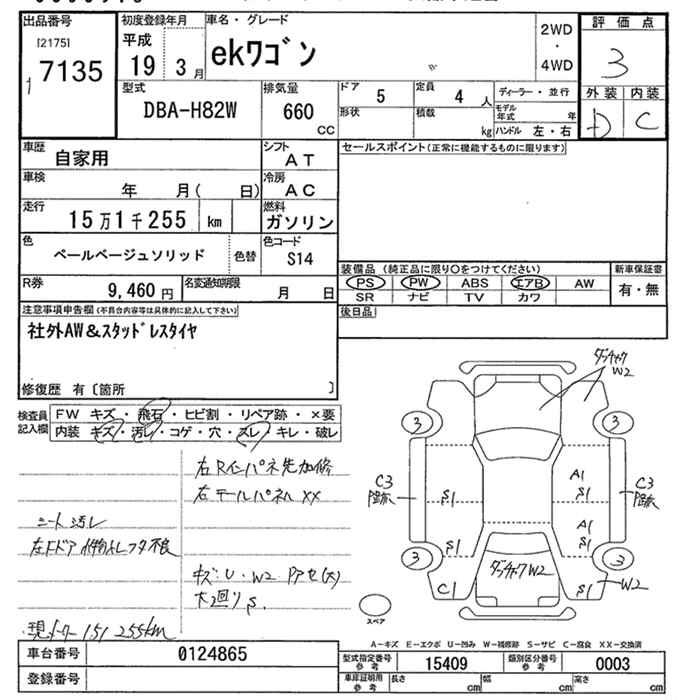 出品番号
[2175]
7135
初度登録年月
平成
19 3月
車名・グレード
ekワゴン
2WD
・
4WD
評価点
3
外装 内装
D C
型式
DBA-H82W
排気量
660
cc
ドア
5
定員
4人
形状
積載
kg
ディーラー・並行
モデル年式 年
ハンドル 左・右
車歴
自家用
シフト
AT
車検
年 月( 日)
冷房
AC
走行
15万1千255 km
燃料
ガソリン
色
ペールベージュソリッド
色替
色コード
S14
R券
9,460円
名変通知期限
月 日
セールスポイント(正常に機能するものに限ります)
装備品(純正品に限り○をつけてください)
PS PW ABS エアB AW
SR ナビ TV カワ
新車保証書
有・無
後日品
注意事項申告欄(不具合内容等は具体的に記入して下さい)
社外AW&スタッドレスタイヤ
修復歴 有〔箇所 〕
検査員記入欄
FW キズ・飛石・ヒビ割・リペア跡・×要
内装 キズ・汚レ・コゲ・穴・スレ・キレ・破レ
シート汚レ
現メーター 151255km
右Rインパネ先加修
右テールパネル XX
キズ・U・W2
大廻りS
W2
3
3
C3
C3
S1
A1
S1
A1
S1
S1
3
3
C1
W2
S1
W2
スペア
A-キズ E-エクボ U-凹み W-補修跡 S-サビ C-腐食 XX-交換済
車台番号
0124865
登録番号
型式指定番号
参考
15409
類別区分番号
参考
0003
車庫証明用
参考
長さ cm
幅 cm
高さ cm